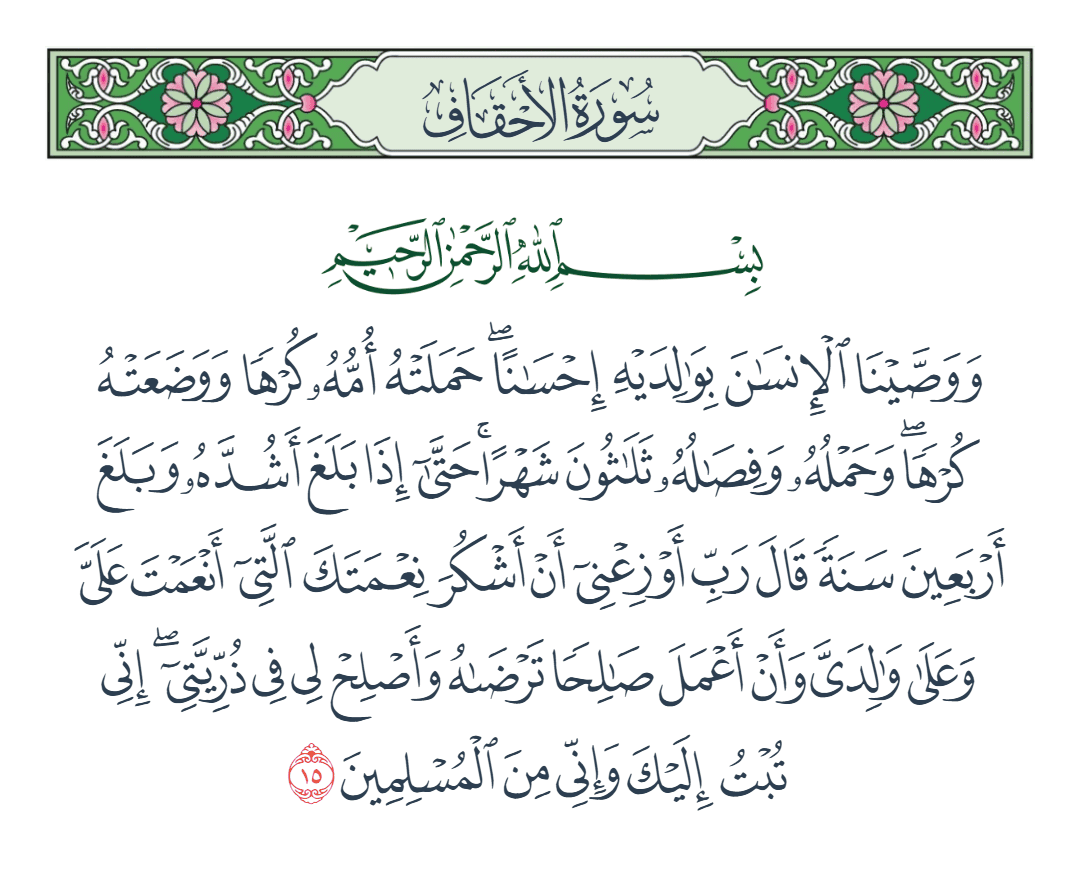 سُورَةُ الأَحْقَافِ
بِسْمِ ٱللَّهِ ٱلرَّحْمَٰنِ ٱلرَّحِيمِ
وَوَصَّيْنَا ٱلْإِنسَٰنَ بِوَٰلِدَيْهِ إِحْسَٰنًاۖ حَمَلَتْهُ أُمُّهُۥ كُرْهًا وَوَضَعَتْهُ
كُرْهًاۖ وَحَمْلُهُۥ وَفِصَٰلُهُۥ ثَلَٰثُونَ شَهْرًاۚ حَتَّىٰٓ إِذَا بَلَغَ أَشُدَّهُۥ وَبَلَغَ
أَرْبَعِينَ سَنَةً قَالَ رَبِّ أَوْزِعْنِىٓ أَنْ أَشْكُرَ نِعْمَتَكَ ٱلَّتِىٓ أَنْعَمْتَ عَلَىَّ
وَعَلَىٰ وَٰلِدَىَّ وَأَنْ أَعْمَلَ صَٰلِحًا تَرْضَىٰهُ وَأَصْلِحْ لِى فِى ذُرِّيَّتِىٓۖ إِنِّى
تُبْتُ إِلَيْكَ وَإِنِّى مِنَ ٱلْمُسْلِمِينَ ١٥